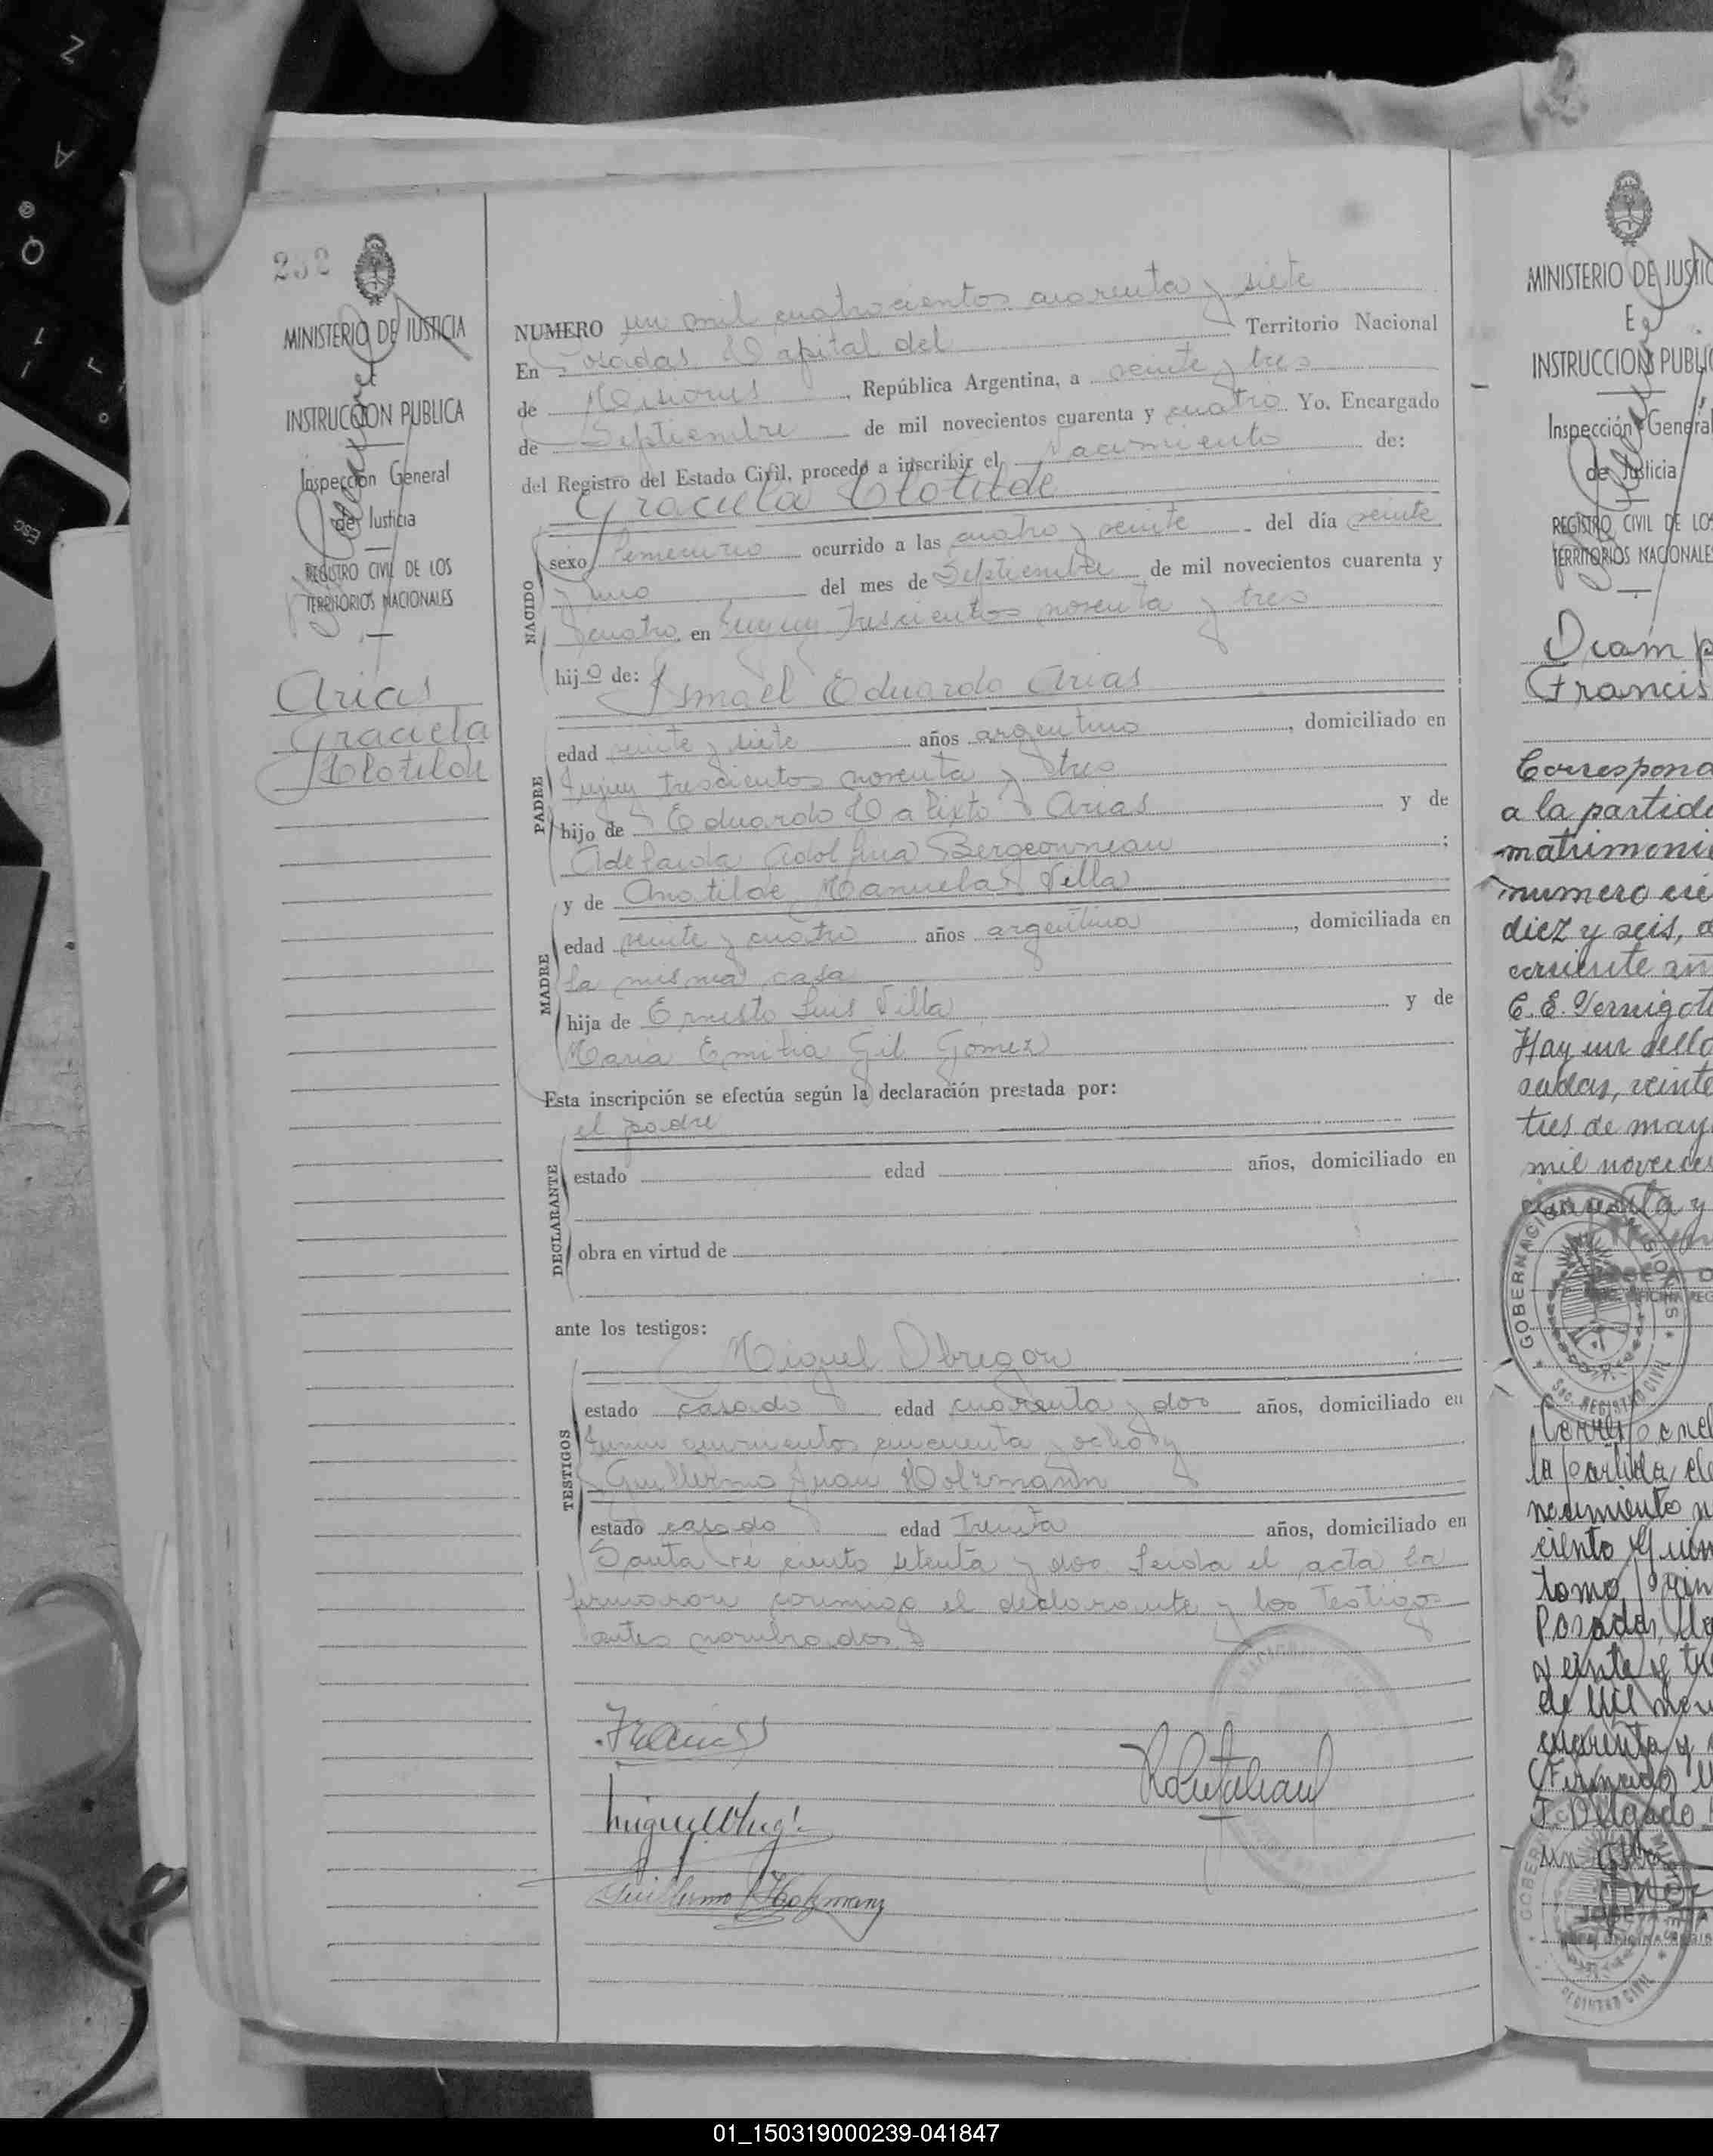 232
MINISTERIO DE JUSTICIA
E
INSTRUCCION PUBLICA
Inspección General
de Justicia
REGISTRO CIVIL DE LOS
TERRITORIOS NACIONALES
Arias
Graciela
Clotilde
NUMERO un mil cuatrocientos cuarenta y siete
En Posadas Capital del Territorio Nacional
de Misiones, República Argentina, a veinte y tres
de Septiembre de mil novecientos cuarenta y cuatro Yo. Encargado
del Registro del Estado Civil, procedo a inscribir el Nacimiento de:
Graciela Clotilde
NACIDO
sexo femenino ocurrido a las cuatro y veinte del día veinte
y uno del mes de Septiembre de mil novecientos cuarenta y
cuatro en Jujuy trescientos noventa y tres
hija de: Ismael Eduardo Arias
PADRE
edad veinte y siete años argentino, domiciliado en
Jujuy trescientos noventa y tres
hijo de Eduardo Calixto Arias y de
Adelaida Adolfina Bergeonneau;
y de Clotilde Manuela Villa
MADRE
edad veinte y cuatro años argentina, domiciliada en
la misma casa
hija de Ernesto Luis Villa y de
Maria Emilia Gil Gomez
Esta inscripción se efectúa según la declaración prestada por:
el padre
DECLARANTE
estado edad años, domiciliado en
obra en virtud de
ante los testigos:
Miguel Obregon
TESTIGOS
estado casado edad cuarenta y dos años, domiciliado en
quinientos cincuenta y ocho y
Guillermo Juan Holzmann
estado casado edad treinta años, domiciliado en
Santa Fé ciento setenta y dos. Leida el acta la
firmaron conmigo el declarante y los testigos
antes nombrados
Guillermo J Holzmann
MINISTERIO DE JUSTIC
E
INSTRUCCION PUBLIC
Inspección General
de Justicia
REGISTRO CIVIL DE LOS
TERRITORIOS NACIONALES
Francis
Correspond
a la partida
matrimoni
numero
diez y seis, d
corriente añ
Hay un sello
sadas, veinte
tres de may
mil noveci
GOBERNACION MISIONES
SEC. REGISTRO CIVIL
la partida de
nacimiento n
ciento
tomo
Posadas,
veinte y tr
de mil nov
cuarenta y
(Firmado
J. Delgado
un
REGISTRO CIVIL
01_150319000239-041847